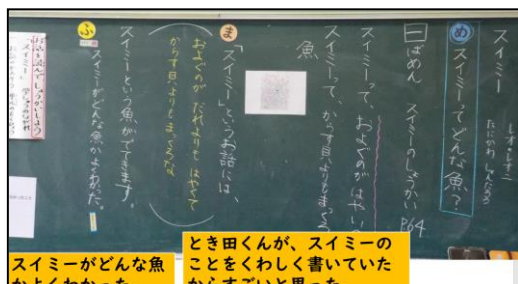 スイミー
レオ＝レオニ
たにかわ しゅんたろう
め スイミーってどんな魚？
一ばめん スイミーのしょうかい P64
スイミーって、およぐのがはやい
スイミーって、からす貝よりもまっくろ
魚
ま 「スイミー」というお話には、
およぐのがだれよりもはやくて
からす貝よりもまっくろな
スイミーという魚がでてきます。
ふ スイミーがどんな魚かよくわかった。
お話を読んでしょうかいしよう
スイミーがどんな魚
かよくわかった
とき田くんが、スイミーの
ことをくわしく書いていた
からすごいと思った